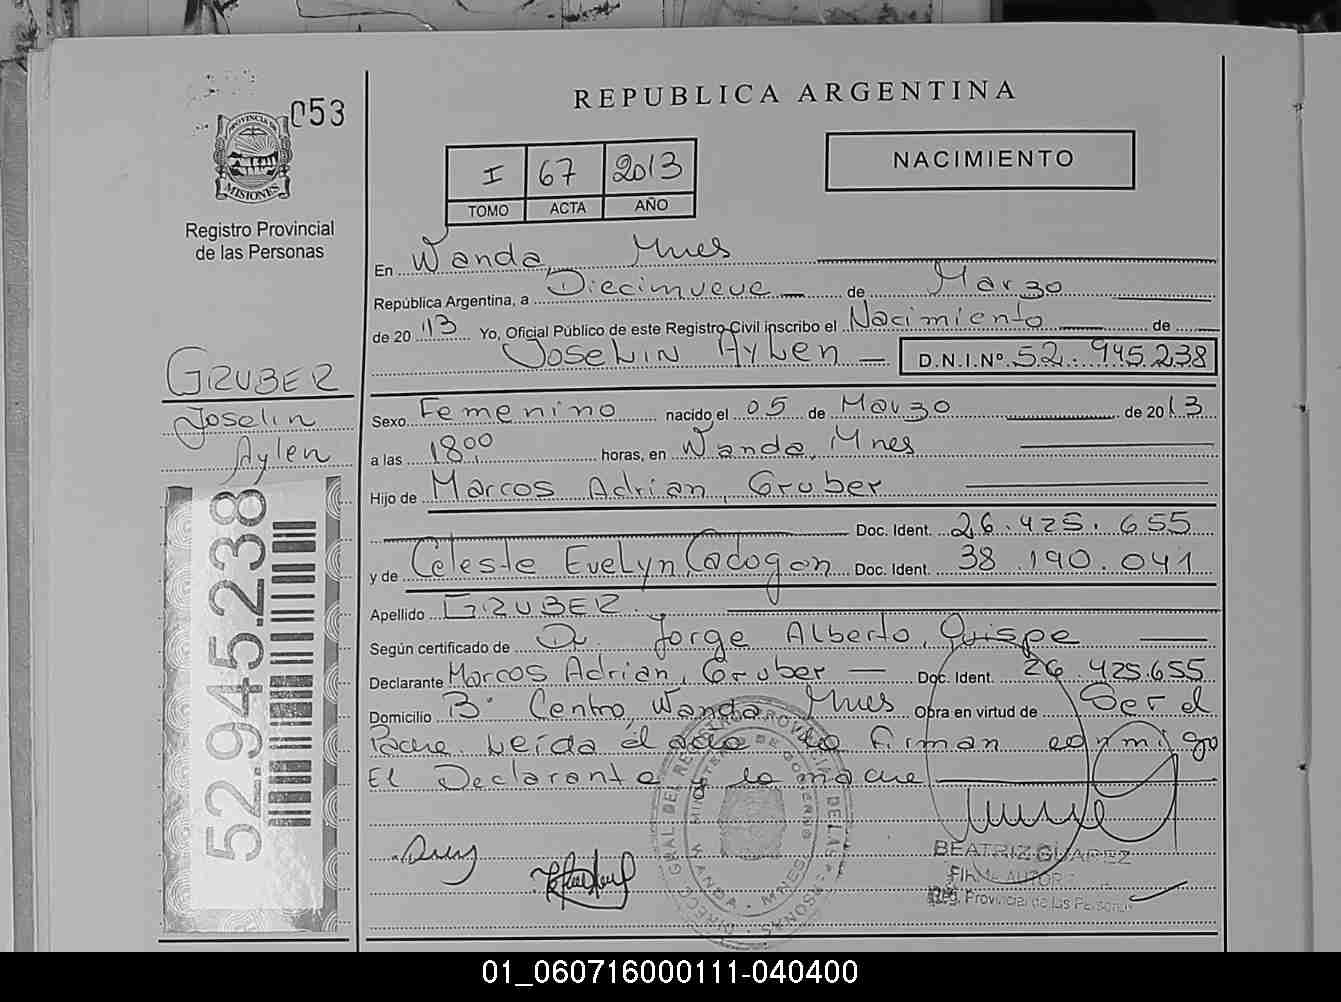 053
PROVINCIA DE
MISIONES
Registro Provincial
de las Personas
REPUBLICA ARGENTINA
I 67 2013
TOMO ACTA AÑO
NACIMIENTO
En Wanda Mnes
República Argentina, a Diecinueve de Marzo
de 2013 Yo, Oficial Público de este Registro Civil inscribo el Nacimiento de
Joselin Aylen D.N.I.Nº 52.945.238
GRUBER
Joselin
Aylen
52.945.238
Sexo Femenino nacido el 05 de Marzo de 2013
a las 18,00 horas, en Wanda, Mnes
Hijo de Marcos Adrian, Gruber
Doc. Ident. 26.425.655
y de Celeste Evelyn, Cadogan Doc. Ident. 38.190.041
Apellido GRUBER
Según certificado de Dr Jorge Alberto, Quispe
Declarante Marcos Adrian, Gruber Doc. Ident. 26.425.655
Domicilio Bº Centro, Wanda Mnes Obra en virtud de Ser el
Padre. Leída el acta la firman conmigo
El Declarante y la madre
BEATRIZ GUAREZ
Reg. Provincial de las Personas
01_060716000111-040400